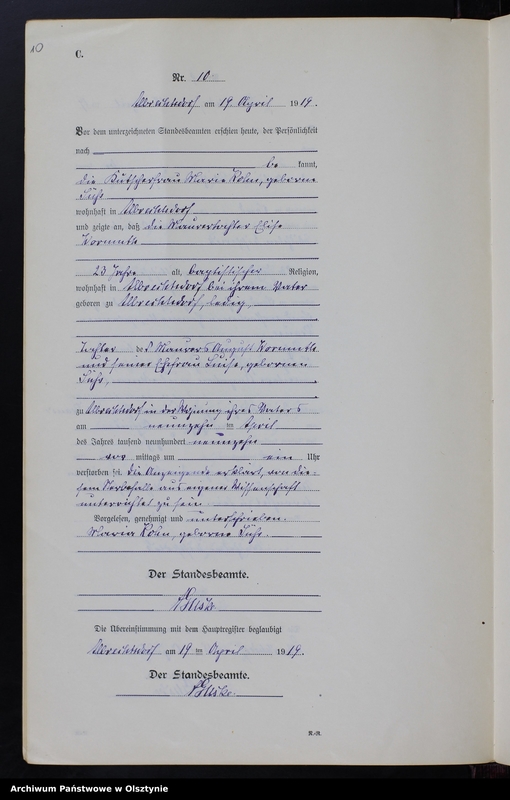 10
C.
Nr. 10
Albrechtsdorf am 19. April 1919.
Vor dem unterzeichneten Standesbeamten erschien heute, der Persönlichkeit
nach
be kannt,
die Kutscherfrau Marie Kohn, geborne
wohnhaft in Albrechtsdorf
und zeigte an, daß die Maurertochter Elise
Wormuth
23 Jahre alt, baptistischer Religion,
wohnhaft in Albrechtsdorf bei ihrem Vater
geboren zu Albrechtsdorf, ledig,
Tochter des Maurers August Wormuth
und seiner Ehefrau Luise, gebornen
zu Albrechtsdorf in der Wohnung ihres Vaters
am neunzehn ten April
des Jahres tausend neunhundert neunzehn
vor mittags um ein Uhr
verstorben sei. Die Anzeigende erklärt, von die-
sem Sterbefalle aus eigener Wissenschaft
unterrichtet zu sein.
Vorgelesen, genehmigt und unterschrieben.
Maria Kohn, geborne
Der Standesbeamte.
Die Übereinstimmung mit dem Hauptregister beglaubigt
Albrechtsdorf am 19 ten April 1919.
Der Standesbeamte.
R.-R.
Archiwum Państwowe w Olsztynie